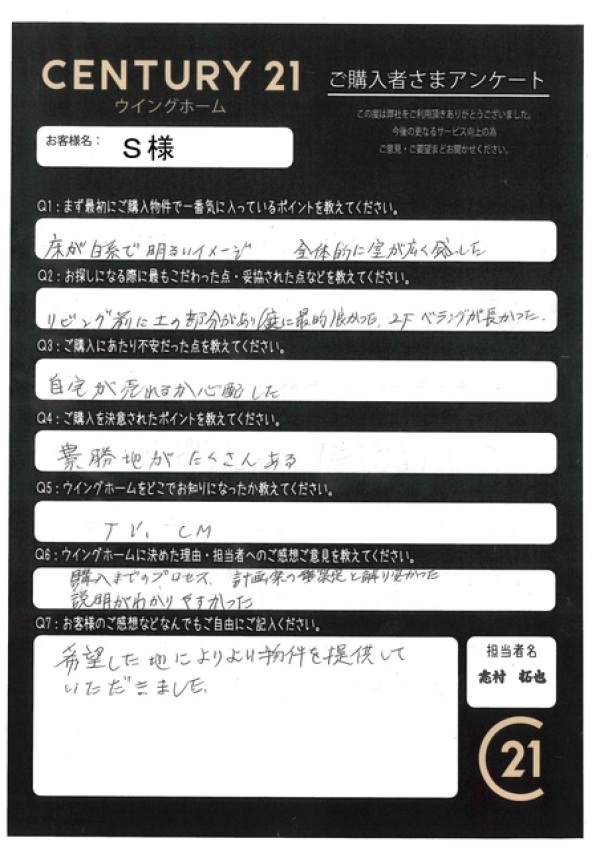 CENTURY 21
ウイングホーム
ご購入者さまアンケート
この度は弊社をご利用頂きありがとうございました。
今後の更なるサービス向上の為
ご意見・ご要望までお聞かせください。
お客様名: S様
Q1:まず最初にご購入物件で一番気に入っているポイントを教えてください。
床が白系で明るいイメージ 全体的に室が広く感じした
Q2:お探しになる際に最もこだわった点・妥協された点などを教えてください。
リビング前に土の部分があり庭に最的良かった、2F ベランダが長かった.
Q3:ご購入にあたり不安だった点を教えてください。
自宅が売れるか心配した
Q4:ご購入を決意されたポイントを教えてください。
景勝地がたくさんある
Q5:ウイングホームをどこでお知りになったか教えてください。
TV. CM
Q6:ウイングホームに決めた理由・担当者へのご感想ご意見を教えてください。
購入までのプロセス、計画案の と解り安かった
説明がわかりやすかった
Q7:お客様のご感想などなんでもご自由にご記入ください。
希望した地によりより物件を提供して
いただきました.
担当者名
志村 拓也
C21